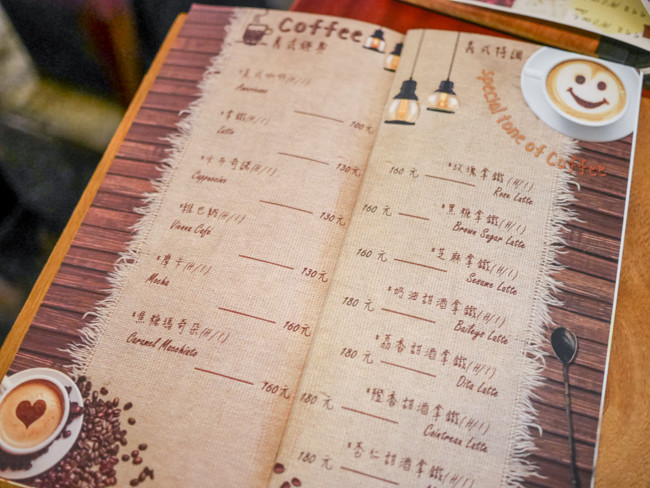 Coffee
義式經典
美式咖啡(H/I)
Americano
100元
拿鐵(H/I)
Latte
130元
卡布奇諾(H/I)
Cappuccino
130元
維也納(H/I)
Vienna Café
130元
摩卡(H/I)
Mocha
160元
焦糖瑪奇朵(H/I)
Caramel Macchiato
160元
義式特調
Special tone of Coffee
160元
玫瑰拿鐵(H/I)
Rose Latte
160元
黑糖拿鐵(H/I)
Brown Sugar Latte
160元
芝麻拿鐵(H/I)
Sesame Latte
180元
奶油甜酒拿鐵(H/I)
Baileys Latte
180元
荔香甜酒拿鐵(H/I)
Dita Latte
180元
橙香甜酒拿鐵(H/I)
Cointreau Latte
180元
杏仁甜酒拿鐵(H/I)